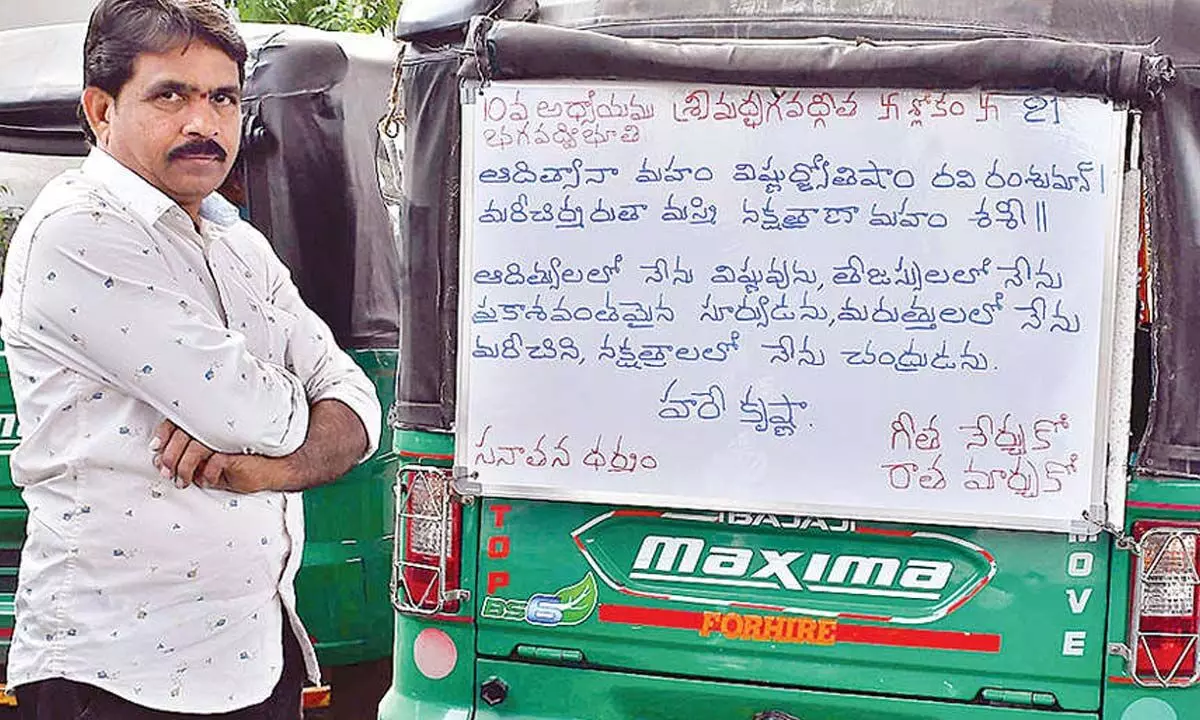 10వ అధ్యాయము శ్రీమద్భగవద్గీత 卐 శ్లోకం 卐 21
భగవద్విభూతి
ఆదిత్యానా మహం విష్ణుర్జ్యోతిషాం రవి రంశుమాన్ |
మరీచిర్మరుతా మస్మి నక్షత్రాణా మహం శశీ ||
ఆదిత్యులలో నేను విష్ణువును, తేజస్సులలో నేను
ప్రకాశవంతమైన సూర్యుడను, మరుత్తులలో నేను
మరీచిని, నక్షత్రాలలో నేను చంద్రుడను.
హరే కృష్ణా.
సనాతన ధర్మం
గీత నేర్చుకో
రాత మార్చుకో
TOP
BAJAJ
maxima
MOVE
BS6
FORHIRE